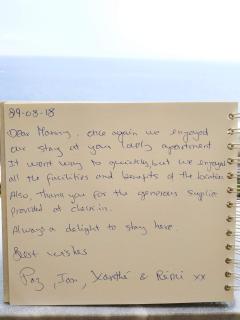 29-08-18
Dear Manny, once again we enjoyed
our stay at your lovely apartment
It went way to quickly, but we enjoyed
all the facilities and benefits of the location
Also, Thank you for the generous supplies
provided at check in.
Always a delight to stay here.
Best wishes
Paz, Jan, Xanthé & Rémi xx